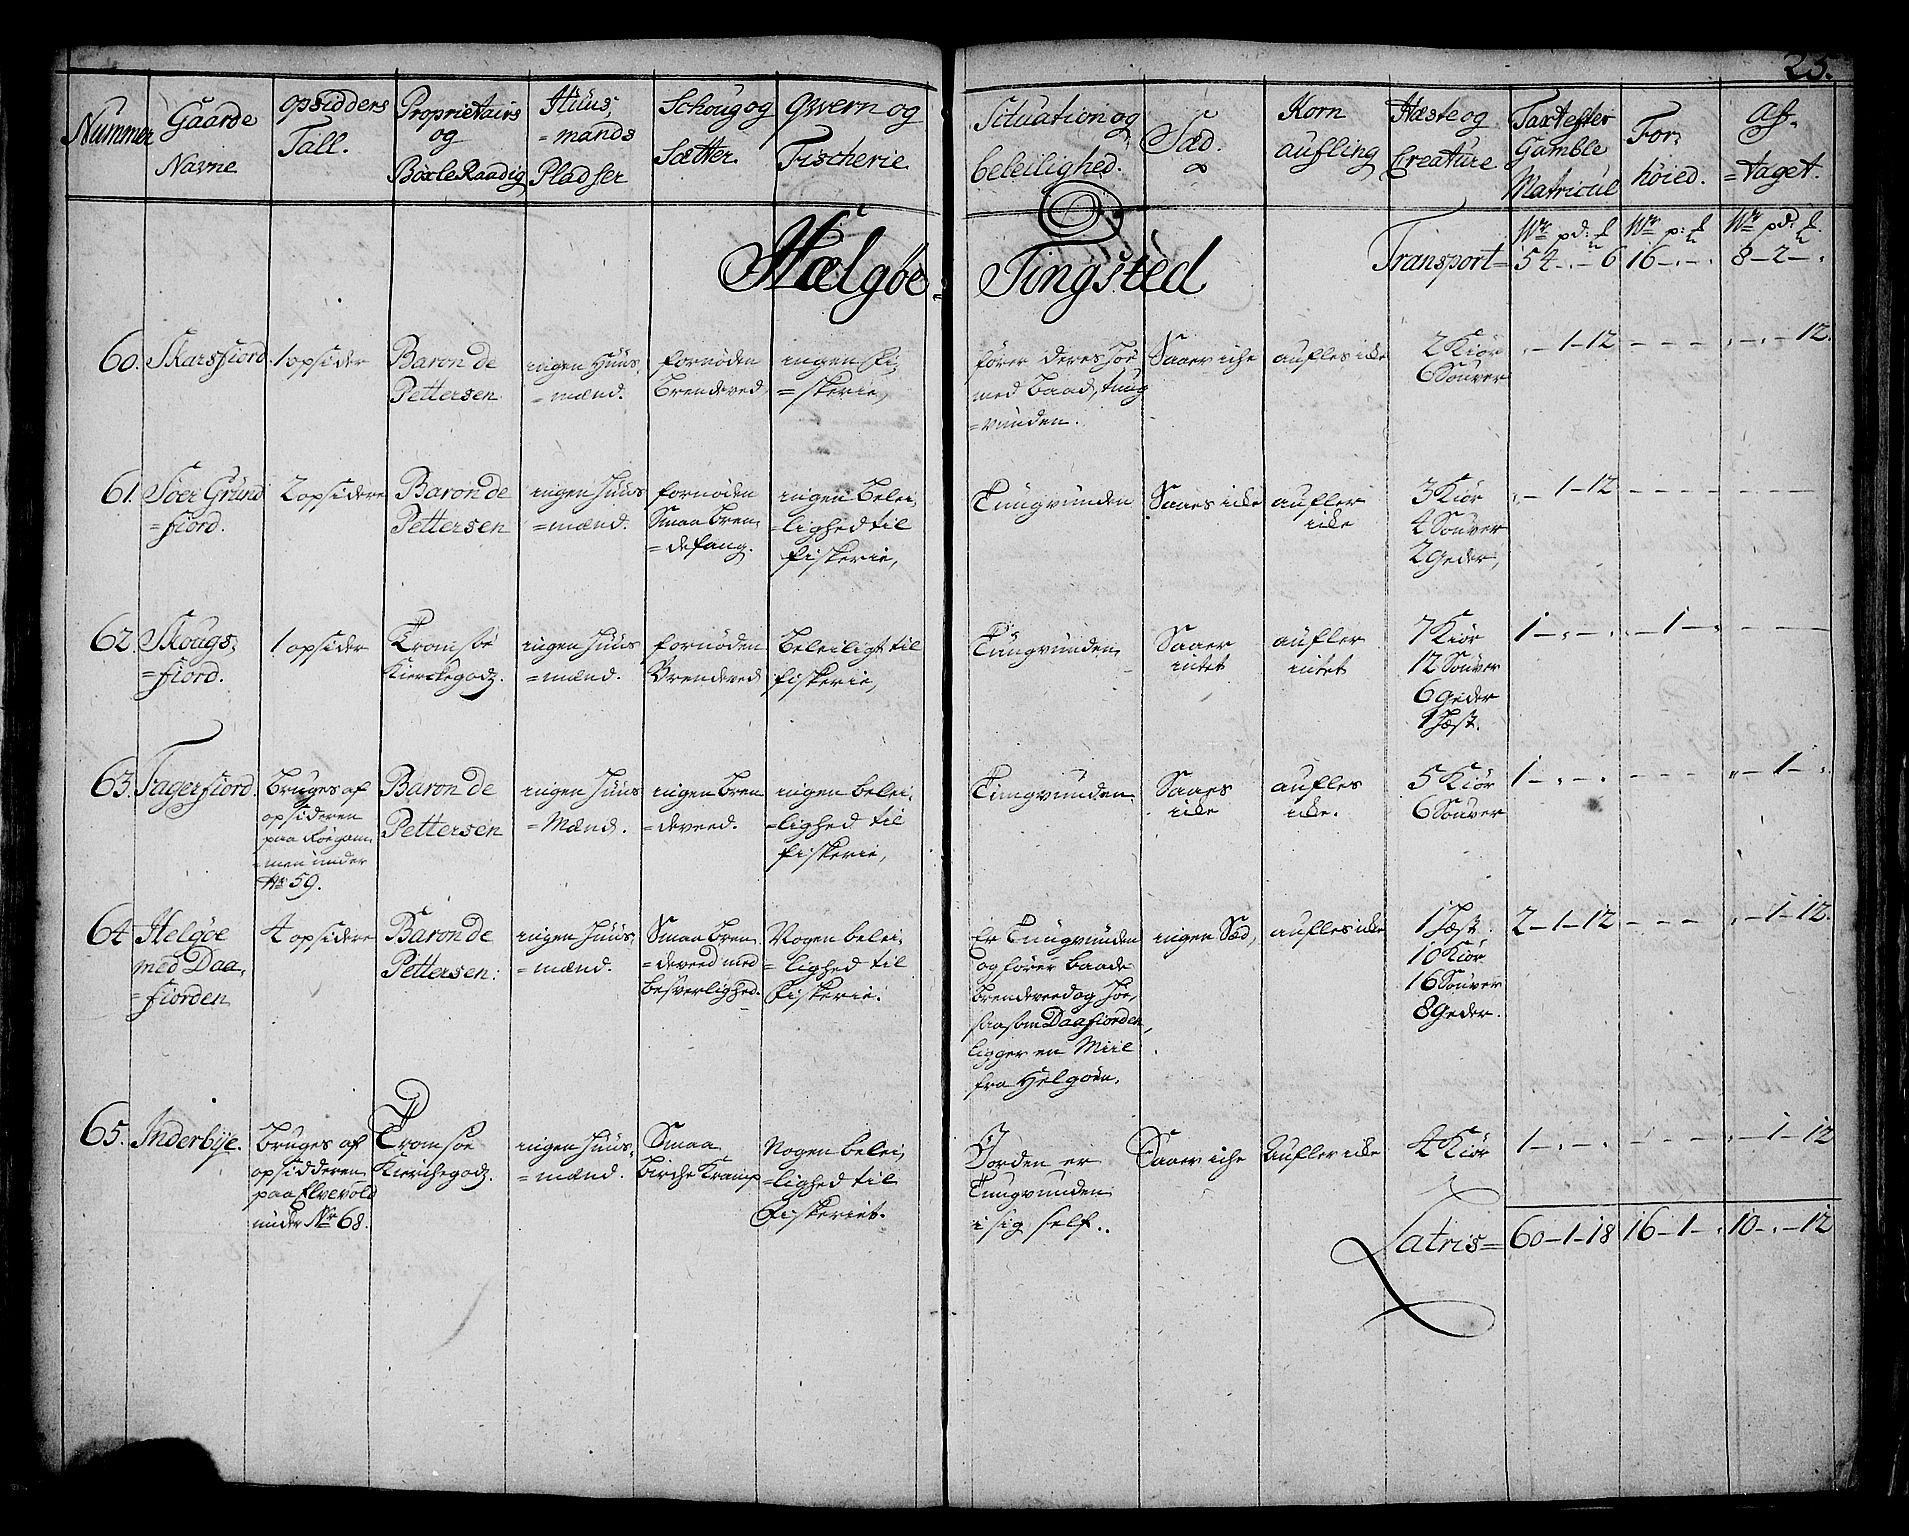 25.
Nummer
Gaarde
Navne
Opsidders
Tall.
Proprietairs
og
BöxleRaadig
Huus,
=mands
Pladser
Schoug og
Sætter.
Qwern og
Fischerie.
Situation og
beleilighed.
Sæd.
Korn
aufling
Hæste og
Creature.
Taxt efter
Gamble
Matricul
For,
höied.
Af,
=taget.
Hælgöe= Tingsted
Wr pd: £ Wr p: £ Wr pd: £
Transport= 54-.-6 16-.-. 8-2-.
60. Skarsfiord. 1 opsider
Baron de
Pettersen
ingen Huus,
=mænd.
fornöden
brendeved,
ingen fi,
=skerie,
förer deres höe
med baad, tung
=vunden.
Saaer iche
aufles ikke
2 Kiör
6 Souver
.-1-12 - - - .-.-12.
61. Soer Grund
=fiord.
2 opsidere
Baron de
Pettersen
ingen huus
=mænd.
fornöden
Smaa bren,
=defang.
ingen belei,
=lighed til
fiskerie,
Tungvunden
Saaes ikke
aufler
ikke
3 Kiör
4 Souver
2 Geder,
.-1-12 - - - - - -
62. Skougs,
=fiord.
1 opsider
Tromsöe
Kierckegodz.
ingen huus
=mænd.
fornöden
Brendeved
beleiligt til
fiskerie,
Tungvunden
Saaer
intet
aufler
intet
7 Kiör
12 Souver
6 Geder
1 Hæst.
1-.-. .-1-. - - -
63. Fagerfiord.
bruges af
opsideren
paa Röegam,
=men under
Nr 59.
Baron de
Pettersen
ingen Huus
=Mænd.
ingen bren
=deveed.
ingen belei,
=lighed til
fiskerie,
Tungvunden
Saaes
ikke
aufles
ikke.
5 Kiör
6 Souver
1-.-. - - - .-1-.
64. Helgöe
med Daa,
=fiorden
4 opsidere
Baron de
Pettersen:
ingen huus,
=mænd.
Smaa bren,
=deveed med
besverlighed.
Nogen belei,
=lighed til
fiskerie.
Er Tungvunden
og förer baade
brendeveed og höe,
saasom Daafiorden,
ligger en Miil
fra Helgöen.
ingen Sæd,
aufles ikke
1 Hæst.
10 Kiör
16 Souver
8 Geder.
2-1-12 - - - .-1-12.
65. Inderbÿe.
bruges af
opsidderen
paa Elvevold
under Nr 68.
Tromsöe
Kierchegodz.
ingen huus,
=mænd.
Smaa
birche Kramp
Nogen belei,
=lighed til
fiskeriet.
Jorden er
Tungvunden
i sig self.
Saaer iche
Aufler ikke
4 Kiör
1-.-. - - - .-1-12
Latris= 60-1-18 16-1-. 10-.-12